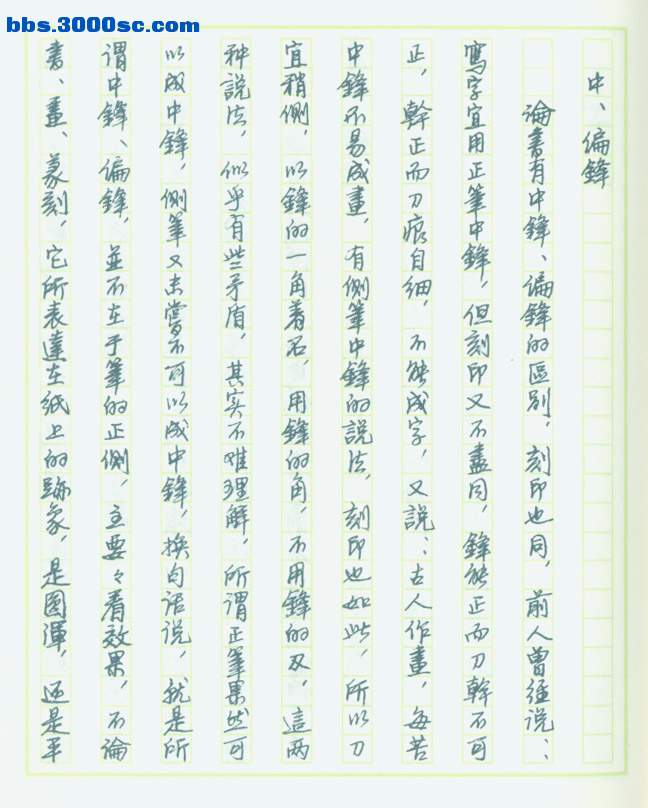 bbs.3000sc.com
中、偏鋒
論書有中鋒、偏鋒的區别，刻印也同，前人曾經说：
寫字宜用正筆中鋒，但刻印又不盡同，鋒能正而刀幹不可
正，幹正而刀痕自细，不能成字，又說：古人作畫，每苦
中鋒不易成畫，有側筆中鋒的說法，刻印也如此，所以刀
宜稍側，以鋒的一角着石，用鋒的角，不用鋒的刄，這两
种説法，似乎有些矛盾，其实不难理解，所谓正筆果然可
以成中鋒，側筆又未嘗不可以成中鋒，换句话说，就是所
谓中鋒、偏鋒，並不在于筆的正側，主要々看效果，不論
書、畫、篆刻，它所表達在紙上的跡象，是圆渾，还是平